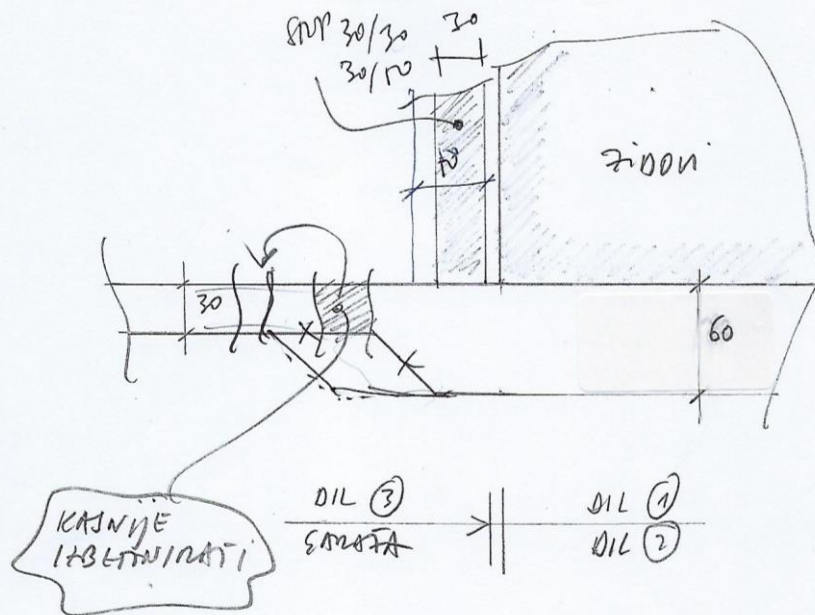 STUP 30/30
30/50
30
50
ZIDOVI
30
60
KASNIJE
IZBETONIRATI
DIL ③
GARAŽA
DIL ①
DIL ②